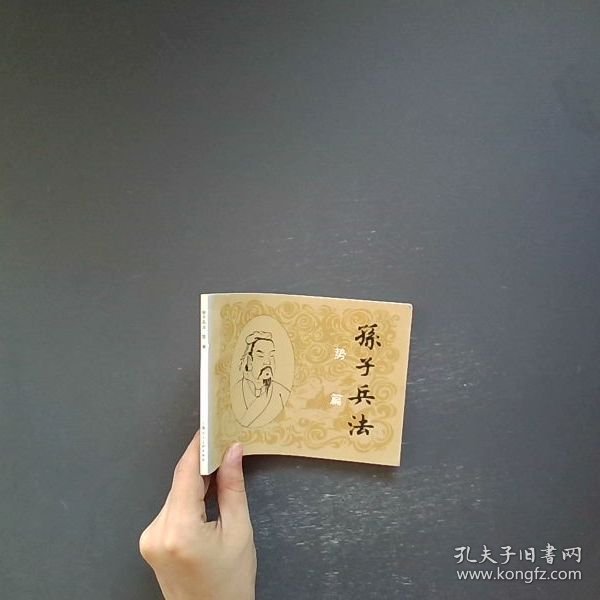 孫子兵法
势篇
孔夫子旧書网
www.kongfz.com